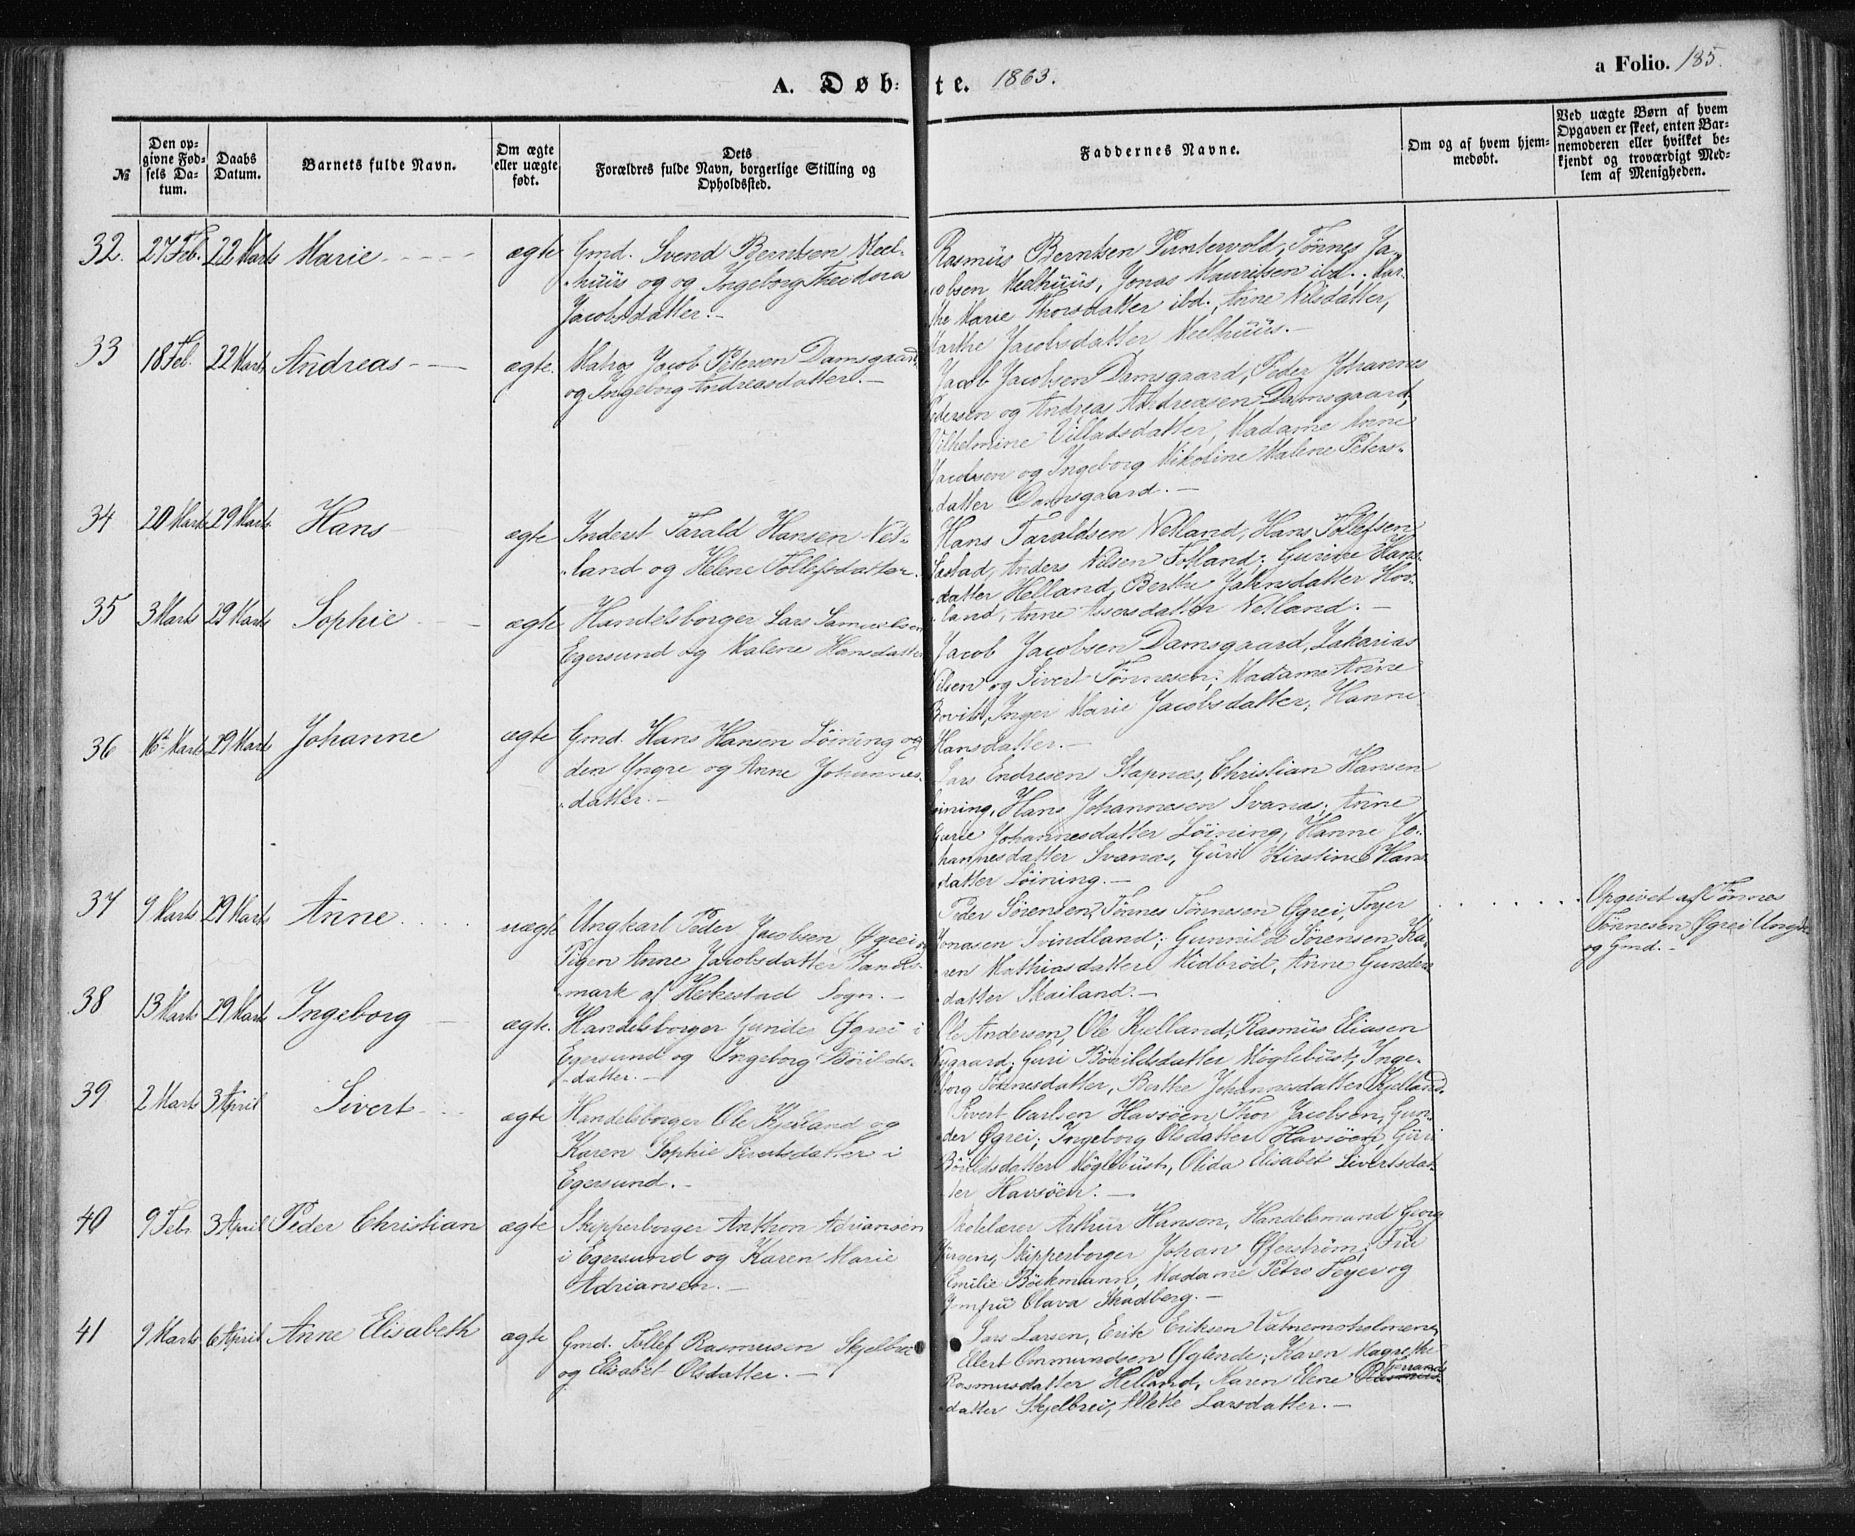 A. Døbte. 1863.
a Folio. 135.
№
Den opgivne Fødsels Datum.
Daabs Datum.
Barnets fulde Navn.
Om ægte eller uægte født.
Dets Forældres fulde Navn, borgerlige Stilling og Opholdssted.
Faddernes Navne.
Om og af hvem hjemmedøbt.
Ved uægte Børn af hvem Opgaven er skeet, enten Barnemoderen eller hvilket bekjendt og troværdigt Medlem af Menigheden.
32. 27 Feb. 22 Marts Marie ægte
Gmd. Svend Berntsen Meel-
huus og og Ingeborg Theodora
Jacobsdatter.
Rasmus Berntsen Puntervold, Tønnes Ja-
cobsen Meelhuus, Jonas Mauritsen ibd., Mar-
the Marie Thorsdatter ibd., Anne Nilsdatter,
Marthe Jacobsdatter Meelhuus.
33 18 Feb. 22 Marts Andreas ægte.
Matros Jacob Petersen Damsgaard,
og Ingeborg Andreasdatter.
Jacob Jacobsen Damsgaard, Peder Johannes
Pedersen og Andreas Andreasen Damsgaard,
Vilhelmine Villadsdatter, Madame Anne
Jacobsen og Ingeborg Nikoline Malene Peters-
datter Damsgaard.
34 20 Marts 29 Marts Hans ægte
Inderst Tarald Hansen Net-
land og Helene Tollefsdatter.
Hans Taraldsen Netland, Hans Tollefsen
Anders Nilsen Fotland; Gurine Hans-
datter Helland, Berthe Jakobsdatter Hov-
land, Anne Assersdatter Netland.
35 3 Marts 29 Marts Sophie ægte
Handelsborger Lars Samuelsen
Egersund og Malene Hansdatter
Jacob Jacobsen Damsgaard, Zakarias
Nilsen og Sivert Tønnesen; Madame Anne
Inger Marie Jacobsdatter, Hanne
Hansdatter.
36 16de Marts 29 Marts Johanne ægte
Gmd. Hans Hansen Løining og
den Yngre og Anne Johannes-
datter.
Lars Endresen Stapnæs, Christian Hansen
Løining, Hans Johannesen Svanæs; Anne
Garie Johannesdatter Løining, Hanne Jo-
hannesdatter Svanæs, Guri Kirstine Hans-
datter Løining.
37 9 Marts 29 Marts Anne uægte
Ungkarl Peder Jacobsen Øgrei og
Pigen Anne Jacobsdatter Lands-
mark af Heskestad Sogn.
Peder Sørensen, Tønnes Tønnesen Øgrei, Inger
Jonasen Svindland; Gunnild Sørensen Ka-
ren Mathiasdatter Midbrød, Anne Gunders-
datter Skailand.
Opgivet af Tønnes
Tønnesen Øgrei Ungk.
og Gmd.
38 13 Marts 29 Marts Ingeborg ægte.
Handelsborger Gunder Øgrei i
Egersund og Ingeborg Bøvilds-
datter.
Ole Andersen, Ole Kjelland, Rasmus Eliasen
Nygaard; Guri Bøvildsdatter Møglebust, Inge-
borg Tønnesdatter, Berthe Johannesdatter Kjelland.
39 2 Marts 3 April Sivert ægte
Handelsborger Ole Kjelland og
Karen Sophie Sivertsdatter i
Egersund.
Sivert Carlsen Havsøen, Thor Jacobsen, Gun-
der Øgrei; Ingeborg Olsdatter Havsøen, Guri
Bøvildsdatter Møglebust, Olida Elisabet Sivertsdat-
ter Havsøen.
40 9 Febr 3 April Peder Christian ægte
Skipperborger Anthon Adriansen
i Egersund og Karen Marie
Adriansen.
Skolelærer Arthur Hanson, Handelsmand Georg
Jürgens, Skipperborger Johan Øferstrøm; Fru
Emilie Böckmann, Madame Petro Feyer og
Jomfru Olava Skadberg.
41 9 Marts 6 April Anne Elisabeth ægte
Gmd. Tollef Rasmusen Skjelbrei
og Elisabet Olsdatter.
Lars Larsen, Erik Eriksen Vatnemoholmene,
Elert Ommundsen Øglende; Karen Magrethe
Rasmusdatter Helland, Karen Elene Rasmus- Torvands
datter Skjelbrei, Mette Larsdatter.